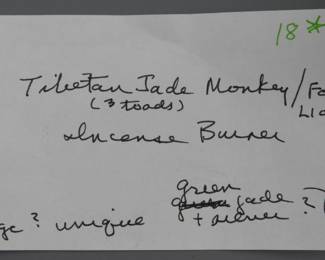 18*
Tibetan Jade Monkey/Fo
(3 toads) Lid
Incense Burner
green
ge? unique jade
+ silver?